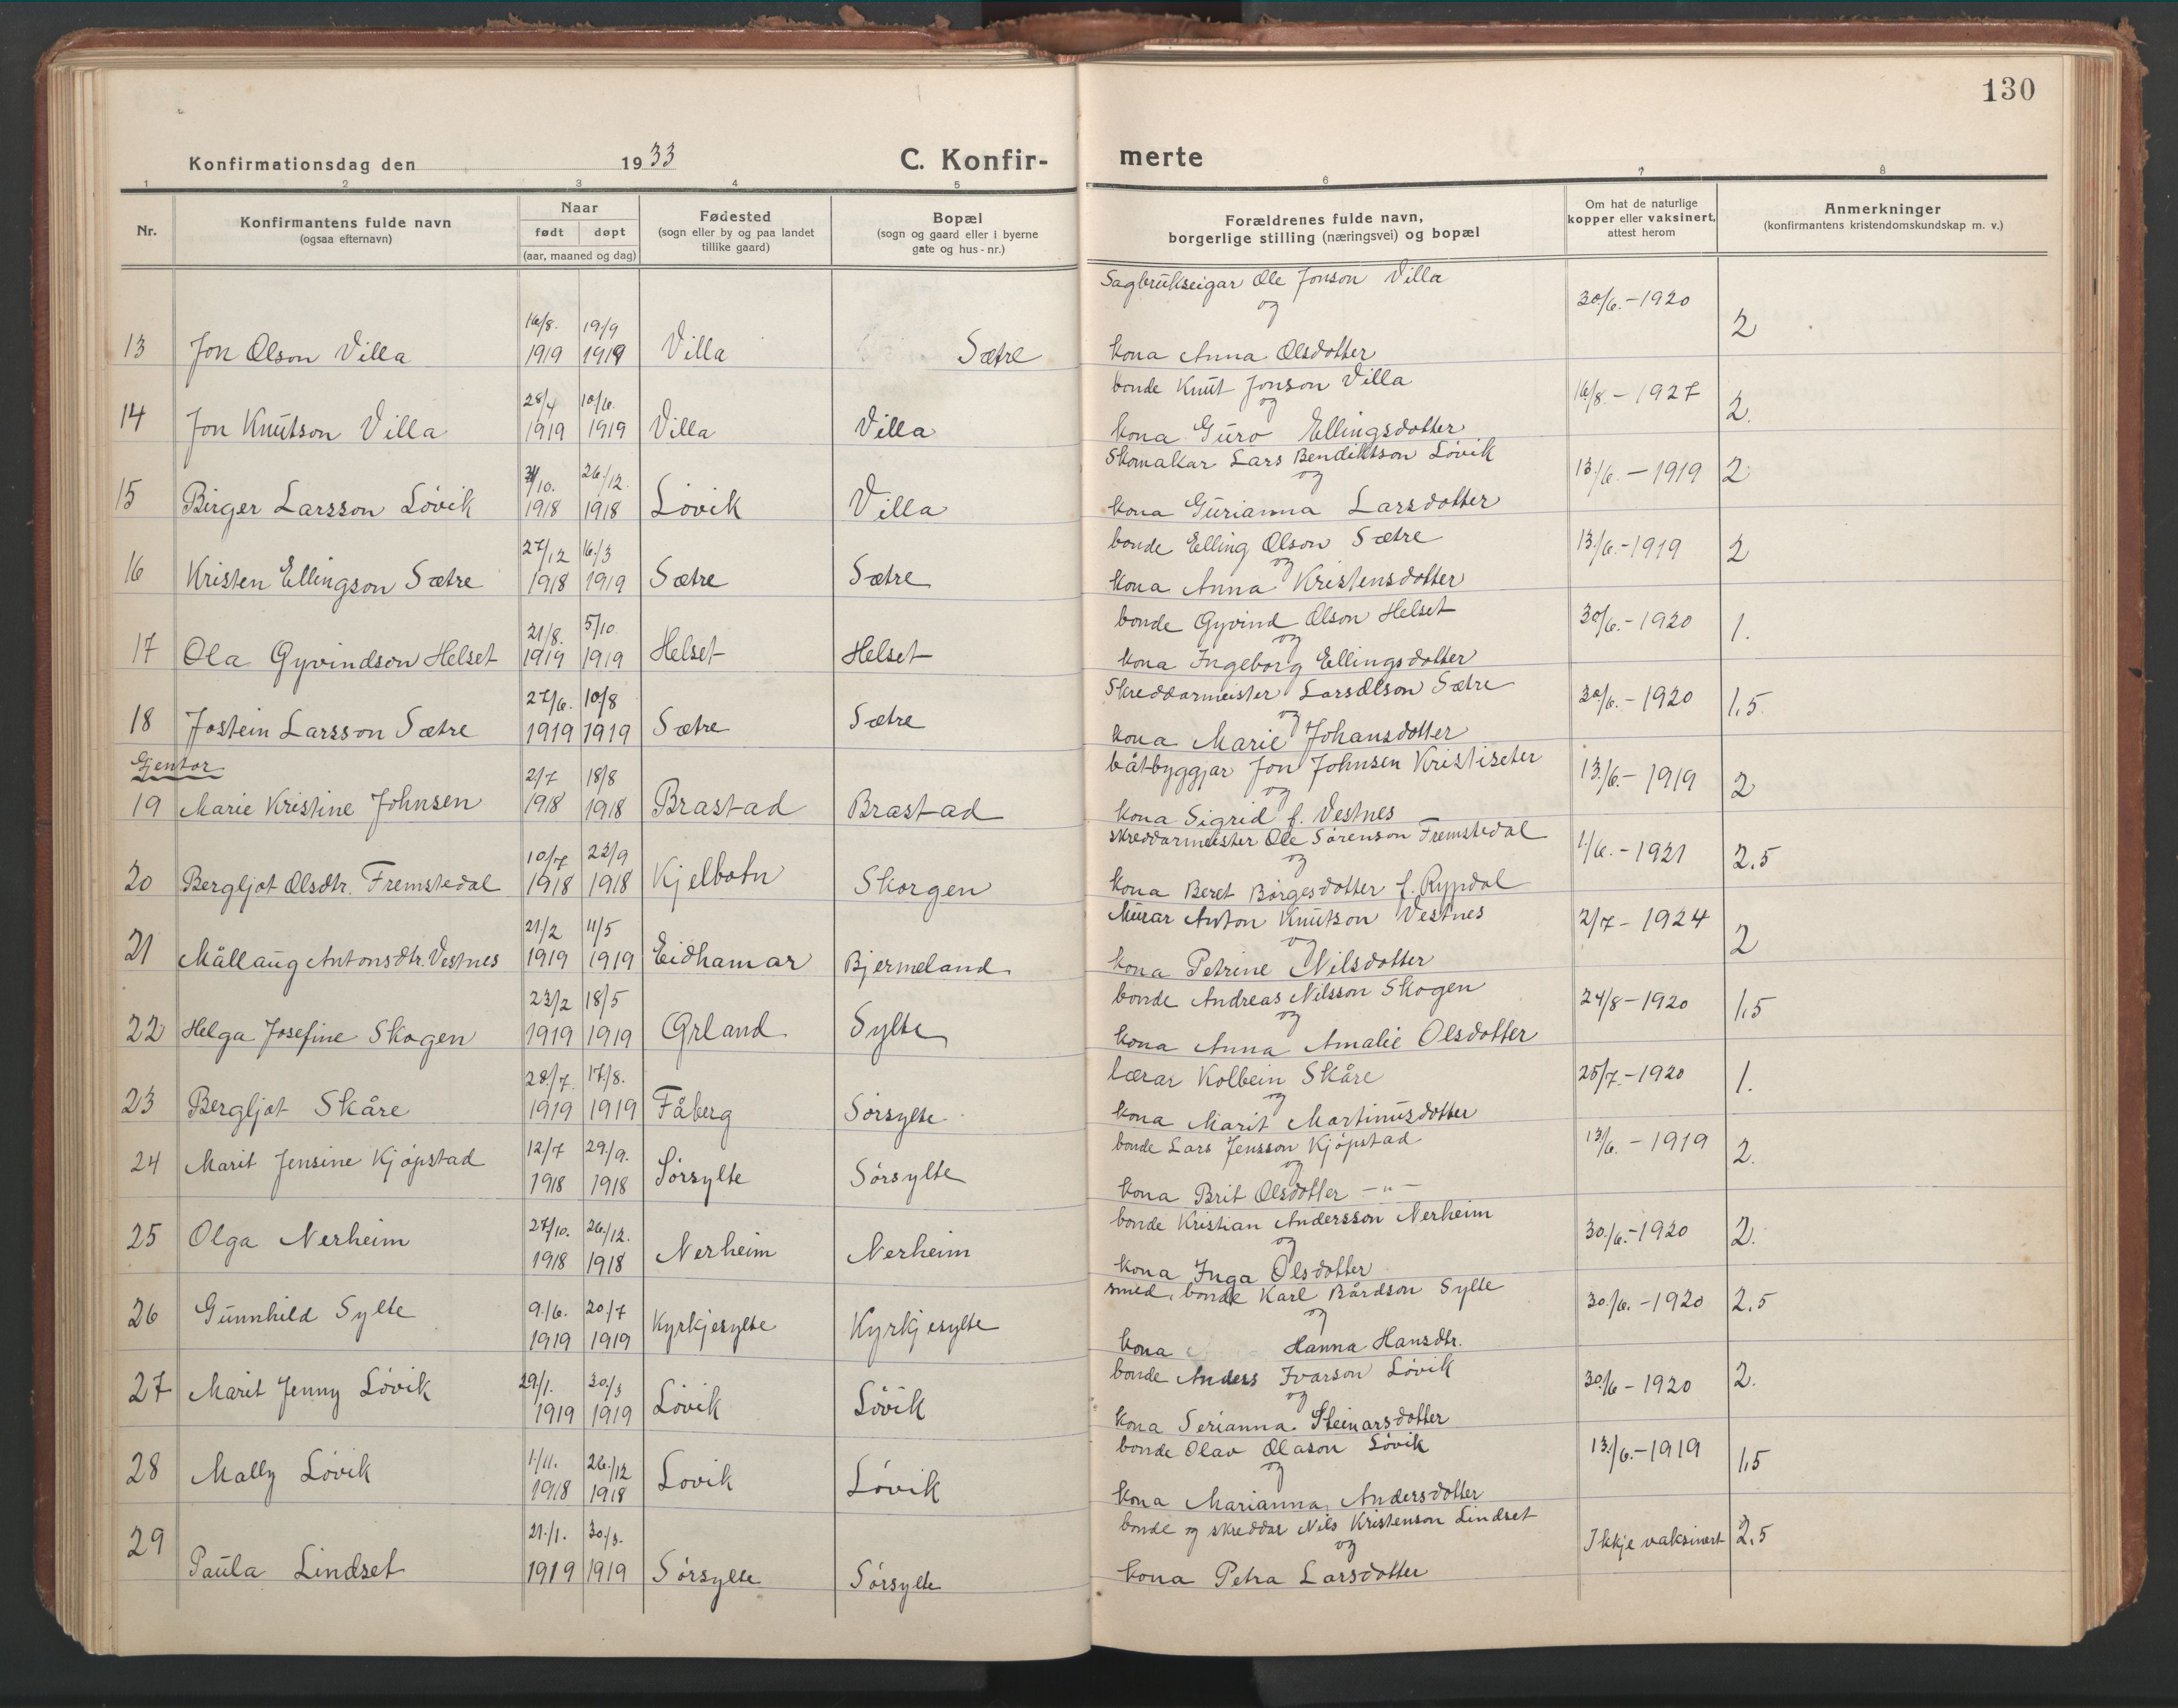 130
Konfirmationsdag den 1933 C. Konfir- merte
1 2 3 4 5 6 7 8
Nr. Konfirmantens fulde navn (ogsaa efternavn) Naar født døpt (aar, maaned og dag) Fødested (sogn eller by og paa landet tillike gaard) Bopæl (sogn og gaard eller i byerne gate og hus-nr.) Forældrenes fulde navn, borgerlige stilling (næringsvei) og bopæl Om hat de naturlige kopper eller vaksinert, attest herom Anmerkninger (konfirmantens kristendomskundskap m. v.)
Sagbrukseigar Ole Jonson Villa
og
16/8. 19/9 30/6.-1920 2
13 Jon Olson Villa 1919 1919 Villa Sætre kona Anna Olsdotter
bonde Knut Jonson Villa
28/4 10/6. og 16/8.-1927
14 Jon Knutson Villa 1919 1919 Villa Villa kona Guro Ellingsdotter 2.
Skomakar Lars Bendiktson Lövik
31/10. 26/12. og 13/6.-1919 2
15 Birger Larsson Lövik 1918 1918 Lövik Villa kona Gurianna Larsdotter
bonde Elling Olson Sætre
27/12 16/3 og 13/6.-1919 2
16 Kristen Ellingson Sætre 1918 1919 Sætre Sætre kona Anna Kristensdotter
bonde Gyvind Olson Helset
21/8. 5/10. og 30/6.-1920 1.
17 Ola Gyvindson Helset 1919 1919 Helset Helset kona Ingeborg Ellingsdotter
Skreddarmeister Lars Olson Sætre
27/6. 10/8 og 30/6.-1920 1,5
18 Jostein Larsson Sætre 1919 1919 Sætre Sætre kona Marie Johansdotter
Gjentor
båtbyggjar Jon Johnsen Kristiseter
2/7 18/8 og 13/6.-1919 2
19 Marie Kristine Johnsen 1918 1918 Brastad Brastad kona Sigrid f. Vestnes
skreddarmeister Ole Sörenson Fremstedal
10/7 22/9 og 1/6.-1921 2,5
20 Bergljot Olsdtr. Fremstedal 1918 1918 Kjelbotn Skorgen kona Beret Börgesdotter f. Rypdal
Murar Anton Knutson Vestnes
21/2 11/5 og 2/7-1924 2
21 Mållaug Antonsdtr. Vestnes 1919 1919 Eidhamar Bjermeland kona Petrine Nilsdotter
bonde Andreas Nilsson Skogen
23/2 18/5 og 24/8-1920 1,5
22 Helga Josefine Skogen 1919 1919 Grland Sylte kona Anna Amalie Olsdotter
lærar Kolbein Skåre
28/7. 17/8. og 25/7.-1920 1.
23 Bergljot Skåre 1919 1919 Fåberg Sörsylte kona Marit Martinusdotter
bonde Lars Jensson Kjöpstad
12/7 29/9. og 13/6.-1919 2.
24 Marit Jensine Kjöpstad 1918 1918 Sörsylte Sörsylte kona Brit Olsdotter -"-
bonde Kristian Andersson Nerheim
27/10. 26/12. og 30/6.-1920 2.
25 Olga Nerheim 1918 1918 Nerheim Nerheim kona Inga Olsdotter
smed, bonde Karl Bårdson Sylte
9/6. 20/7 og 30/6.-1920 2,5
26 Gunnhild Sylte 1919 1919 Kyrkjesylte Kyrkjesylte kona Hanna Hansdtr.
bonde Anders Ivarson Lövik
29/1. 30/3 og 30/6-1920 2.
27 Marit Jenny Lövik 1919 1919 Lövik Lövik kona Serianna Steinarsdotter
bonde Olav Olason Lövik
1/11. 26/12 og 13/6.-1919 1,5
28 Mally Lövik 1918 1918 Lovik Lövik kona Marianna Andersdotter
bonde og skreddar Nils Kristenson Lindset
21/1. 30/3. og Ikkje vaksinert 2,5
29 Paula Lindset 1919 1919 Sörsylte Sörsylte kona Petra Larsdotter